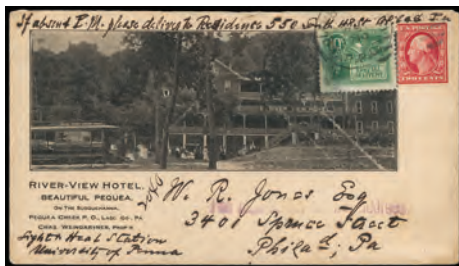 If absent E.M. please deliver to Residence 550
RIVER-VIEW HOTEL,
BEAUTIFUL PEQUEA,
ON THE SUSQUEHANNA,
PEQUEA CREEK P. O., LANC. CO., PA.
CHAS. WEINGARTNER, PROP'R
W. R. Jones Esq
3401 Spruce Street
Philad, Pa
Light & Heat Station
University of Penna